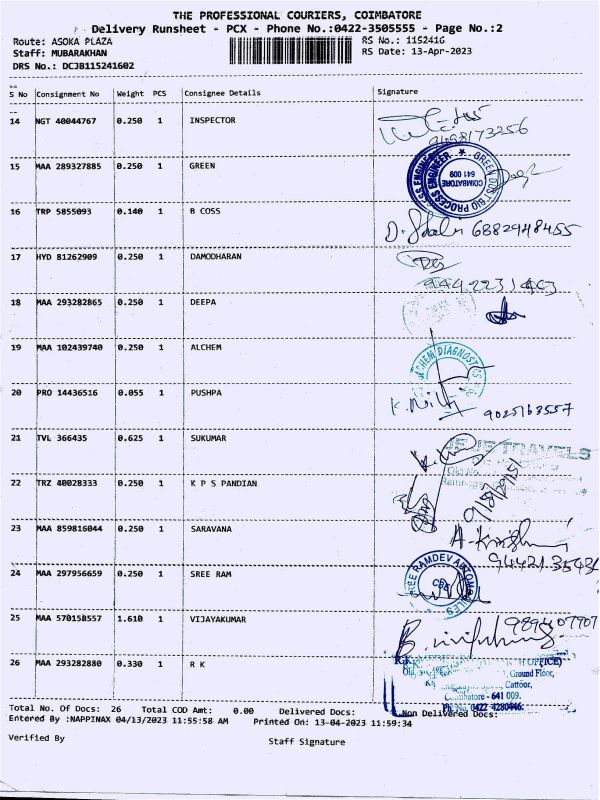 THE PROFESSIONAL COURIERS, COIMBATORE
Delivery Runsheet - PCX - Phone No.:0422-3505555 - Page No.:2
Route: ASOKA PLAZA
RS No.: 1152416
Staff: MUBARAKHAN
RS Date: 13-Apr-2023
DRS No.: DCJB115241602
S No Consignment No Weight PCS Consignee Details Signature
14 NGT 40044767 0.250 1 INSPECTOR
15 MAA 289327885 0.250 1 GREEN
GREEN DUST BIO PROCESS ENGINEER COIMBATORE 641 009
16 TRP 5855093 0.140 1 B COSS
6882948455
17 HYD 81262909 0.250 1 DAMODHARAN
18 MAA 293282865 0.250 1 DEEPA
19 MAA 102439740 0.250 1 ALCHEM
DIAGNOSTICS
20 PRO 14436516 0.055 1 PUSHPA
9025163557
21 TVL 366435 0.625 1 SUKUMAR
TRAVELS
22 TRZ 40028333 0.250 1 K P S PANDIAN
23 MAA 859816044 0.250 1 SARAVANA
24 MAA 297956659 0.250 1 SREE RAM
SREE RAMDEV AUTOMOBILES CBE
25 MAA 570158557 1.610 1 VIJAYAKUMAR
26 MAA 293282880 0.330 1 R K
OFFICE)
Ground Floor,
Cattoor,
Coimbatore - 641 009.
Ph.No. 0422 4280446.
Total No. Of Docs: 26 Total COD Amt: 0.00 Delivered Docs: Non Delivered Docs:
Entered By :NAPPINAX 04/13/2023 11:55:58 AM Printed On: 13-04-2023 11:59:34
Verified By
Staff Signature